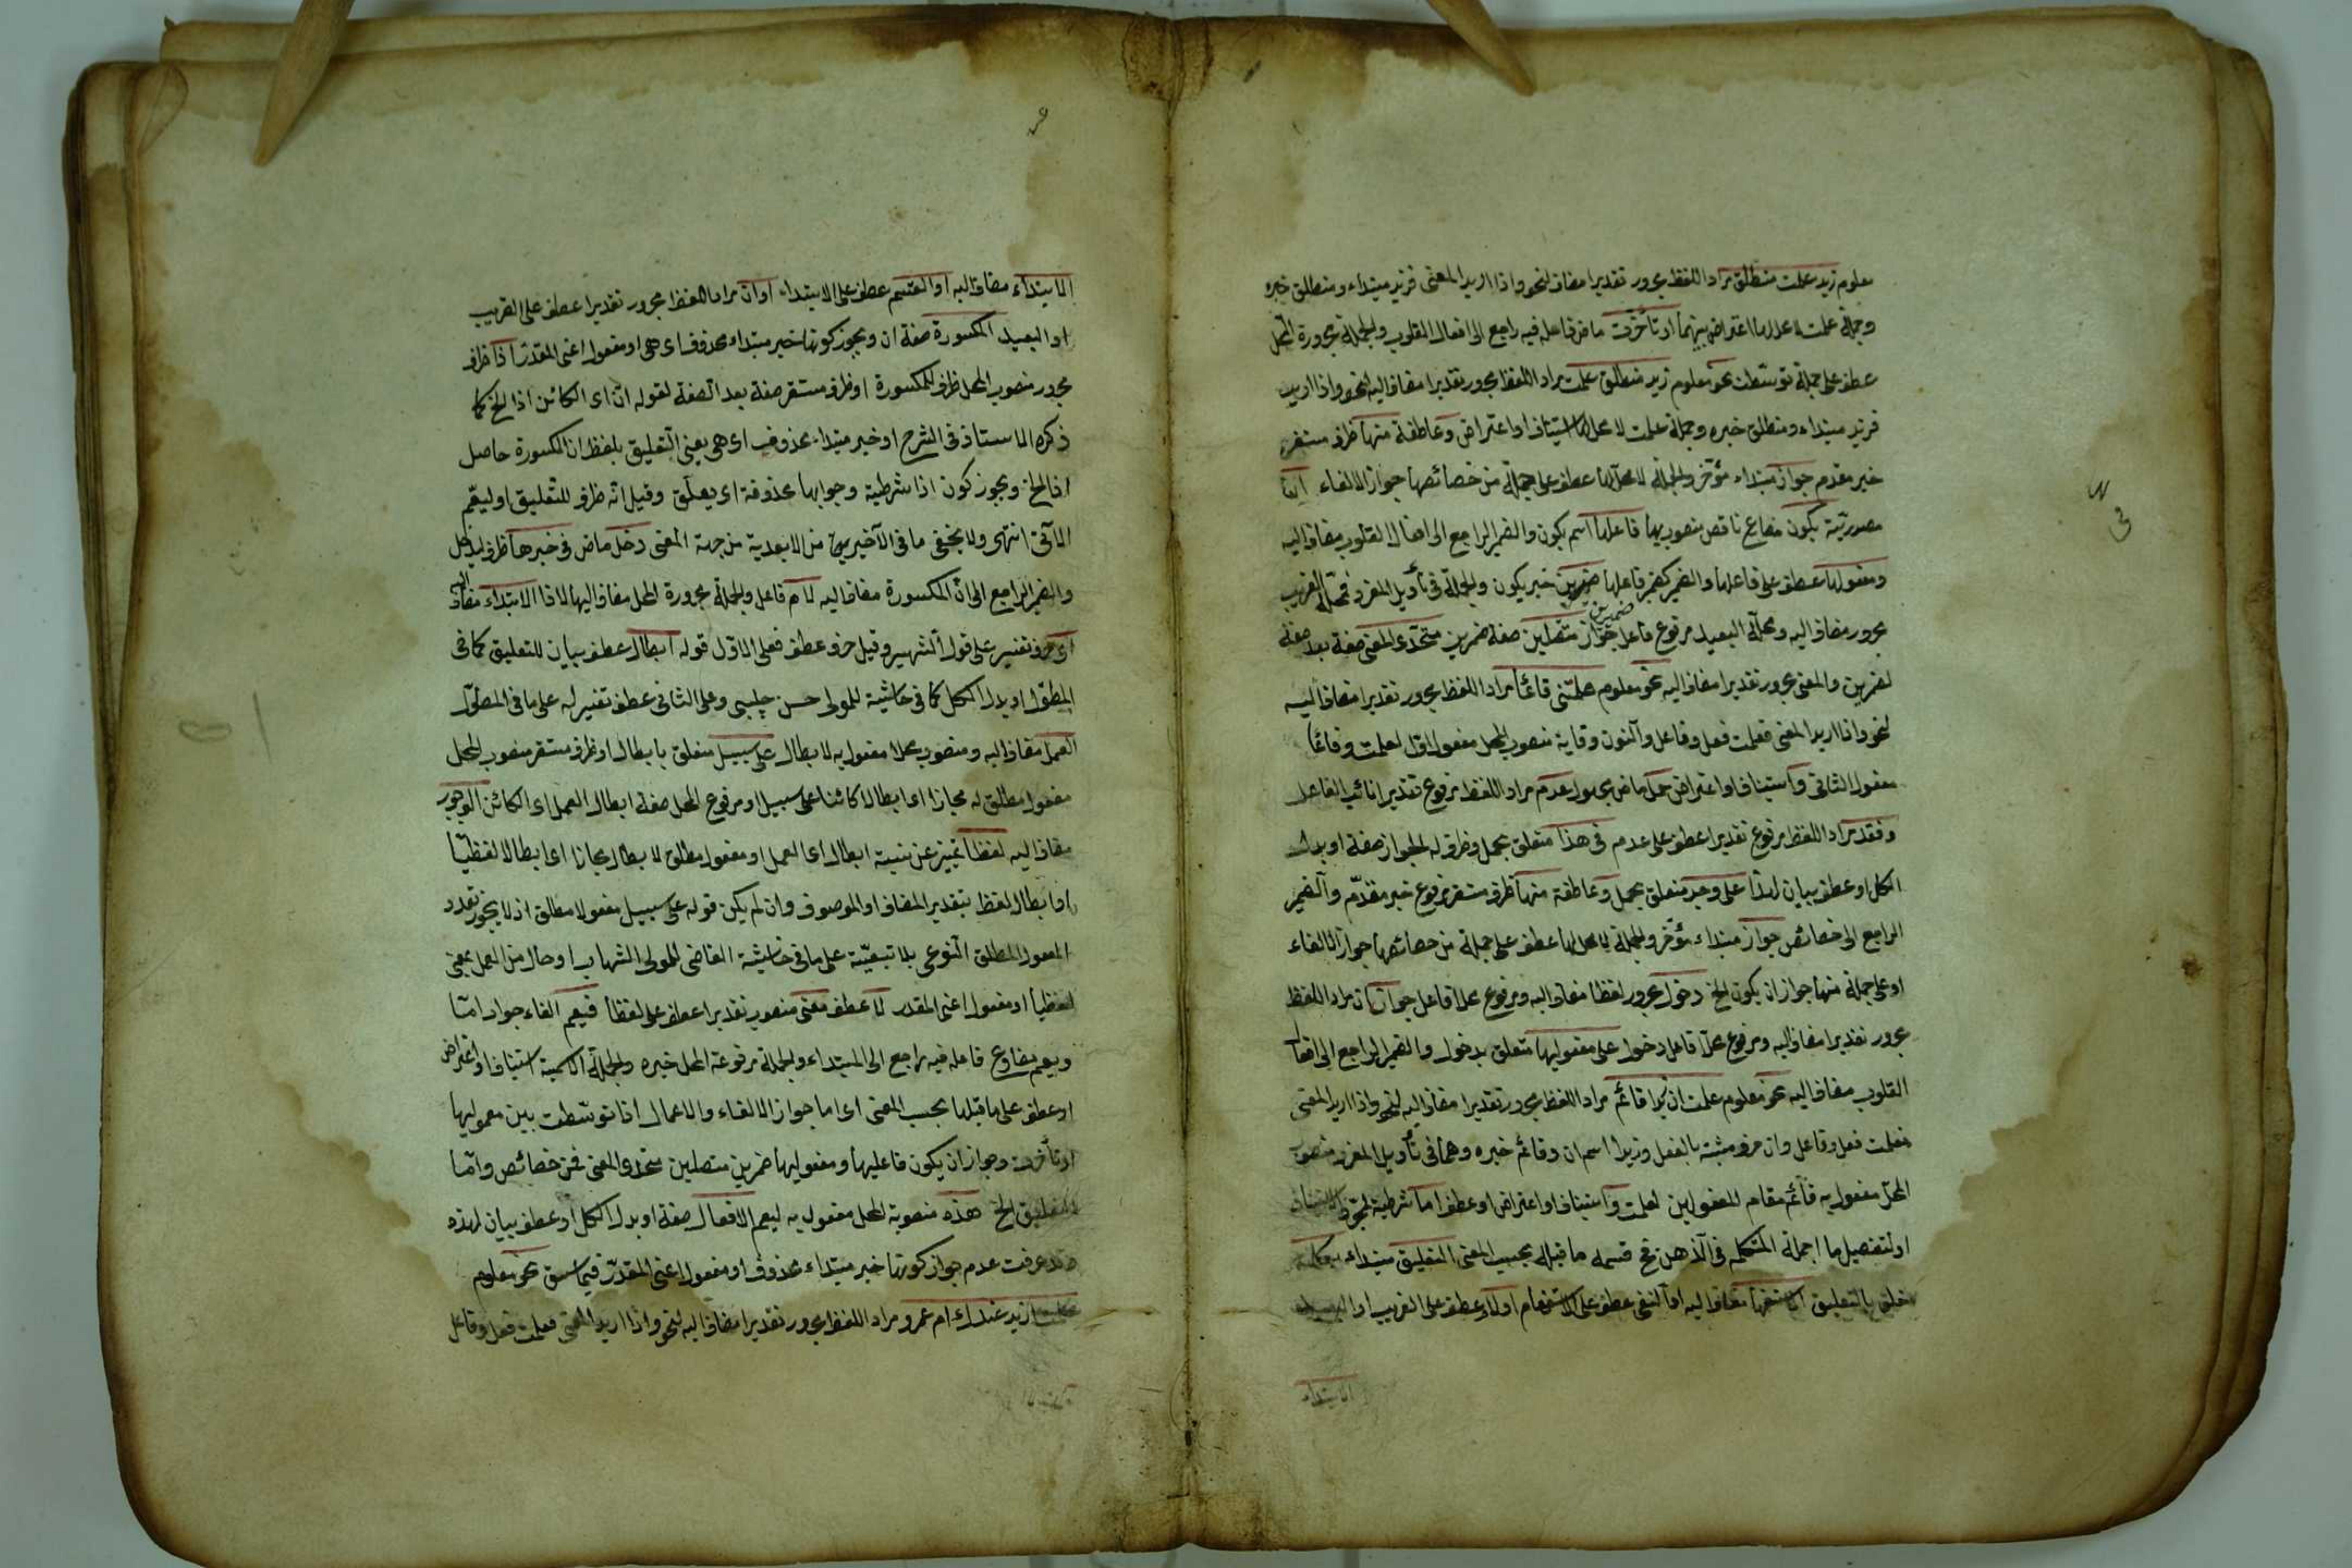 معلوم زيد علمت منطلق مراد اللفظ مجرور تقديرا مضاف لنحو واذا اريد المعنى فزيد مبتداء ومنطلق خبره
وجملة علمت لا محل لها اعتراض بينهما او تأخرت ماض فاعله فيه راجع الى افعال القلوب والجملة مجرورة المحل
عطف على جملة توسطت نحو معلوم زيد منطلق علمت مراد اللفظ مجرور تقديرا مضاف اليه لنحو واذا اريد
فزيد مبتداء ومنطلق خبره وجملة علمت لا محل لها استيناف او اعتراض وعاطفة منها ظرف مستقر
خبر مقدم جواز مبتداء مؤخر والجملة لا محل لها عطف على جملة من خصائصها جواز الالغاء ان
مصدرية يكون مضارع ناقص منصوب بها فاعلها اسم يكون والضمير الراجع الى افعال القلوب مضاف اليه
ومفعولها عطف على فاعلها والضمير كضمير فاعلها ضميرين خبر يكون والجملة في تأويل المفرد فمحله القريب
مجرور مضاف اليه ومحله البعيد مرفوع فاعل جواز متصلين صفة ضميرين متحدى المعنى صفة بعد صفة
ضميرين
لضميرين والمعنى مجرور تقديرا مضاف اليه نحو معلوم علمتنى قائما مراد اللفظ مجرور تقديرا مضاف اليه
لنحو واذا اريد المعنى فعلمت فعل وفاعل والنون وقاية منصوب المحل مفعول اول لعلمت وقائما
مفعول الثانى واستيناف او اعتراض حمل ماض مجهول عدم مراد اللفظ مرفوع تقديرا نائب الفاعل
وفقد مراد اللفظ مرفوع تقديرا عطف على عدم في هذا متعلق بحمل وظرف له الجواز صفة او بدل
الكل او عطف بيان لهذا على وجد متعلق بحمل وعاطفة منها ظرف مستقر مرفوع خبر مقدم والضمير
الراجع الى خصائص جواز مبتداء مؤخر والجملة لا محل لها عطف على جملة من خصائصها جواز الالغاء
او على جملة منها جواز ان يكون الخ دخول مجرور لفظا مضاف اليه ومرفوع محلا فاعل جواز ان مراد اللفظ
مجرور تقديرا مضاف اليه ومرفوع محلا فاعل دخول على مفعوليها متعلق بدخول والضمير الراجع الى افعال
القلوب مضاف اليه نحو معلوم علمت ان زيدا قائم مراد اللفظ مجرور تقديرا مضاف اليه لنحو واذا اريد المعنى
فعلمت فعل وفاعل وان حرف مشبهة بالفعل وزيدا اسم ان وقائم خبره وهما في تأويل المفرد منصوب
المحل مفعول به قائم مقام المفعولين لعلمت واستيناف او اعتراض او عطف اما شرطية لمجرد الاستيناف
او لتفصيل ما اجمله المتكلم في الذهن فح قسمه ما قبله بحسب المعنى التعليق مبتداء بكلمة
متعلق بالتعليق الاستفهام مضاف اليه او النفى عطف على الاستفهام او لام عطف على القريب او البعيد
الابتداء
الابتداء مضاف اليه او القسم عطف على الابتداء او ان مراد اللفظ مجرور تقديرا عطف على القريب
او البعيد المكسورة صفة ان ويجوز كونها خبر مبتداء محذوف اى هى او مفعول اعنى المقدر اذا ظرف
مجرور منصوب المحل ظرف للمكسورة او ظرف مستقر صفة بعد الصفة لقوله ان اى الكائن اذا الخ كما
ذكره الاستاذ في الشرح او خبر مبتداء محذوف اى هى يعنى التعليق بلفظ ان المكسورة حاصل
اذا الخ ويجوز كون اذا شرطية وجوابها محذوفة اى يعلق وقيل انه ظرف للتعليق او ليعم
الآتى انتهى ولا يخفى ما في الآخيرين من الابعدية من جهة المعنى دخل ماض في خبرها ظرف لدخل
والضمير الراجع الى ان المكسورة مضاف اليه لام فاعل والجملة مجرورة المحل مضاف اليها لاذا الابتداء مضاف اليه
اى حرف تفسير على قول الشهير وقيل حرف عطف فعلى الاول قوله ابطال عطف بيان للتعليق كما في
المطول او بدل الكل كما في حاشية للمولى حسن چلبى وعلى الثانى عطف تفسير له على ما في المطول
العمل مضاف اليه ومنصوب محلا مفعول به لابطال على سبيل متعلق بابطال او ظرف مستقر منصوب المحل
مفعول مطلق له مجازا اى ابطالا كائنا على سبيل او مرفوع المحل صفة ابطال العمل اى الكائن الوجوب
مضاف اليه لفظا تمييز عن نسبة ابطال الى العمل او مفعول مطلق لابطال مجازا اى ابطالا لفظيا
او ابطال لفظ بتقدير المضاف او الموصوف وان لم يكن قوله على سبيل مفعولا مطلق اذ لا يجوز تعدد
المفعول المطلق النوعى بلا تبعية على ما في حاشية القاضى للمولى الشهاب او حال من العمل بمعنى
لفظيا او مفعول اعنى المقدر لا عطف معنى منصوب تقديرا عطف على لفظا فيعم الفاء جواب اما
ويعم مضارع فاعله فيه راجع الى المبتداء والجملة مرفوعة المحل خبره والجملة الاسمية استيناف او اعتراض
او عطف على ما قبلها بحسب المعنى اى اما جواز الالغاء والاعمال اذا توسطت بين معموليها
او تأخرت وجواز ان يكون فاعليها ومفعوليها ضميرين متصلين متحدى المعنى فمن خصائص واما
التعليق الخ هذه منصوبة المحل مفعول به ليعم الافعال صفة او بدل الكل او عطف بيان لهذه
وقد عرفت عدم جواز كونها خبر مبتداء محذوف او مفعول اعنى المقدر فيما سبق نحو معلوم
علمت ازيد عندك ام عمرو مراد اللفظ مجرور تقديرا مضاف اليه لنحو واذا اريد المعنى فعلمت فعل وفاعل